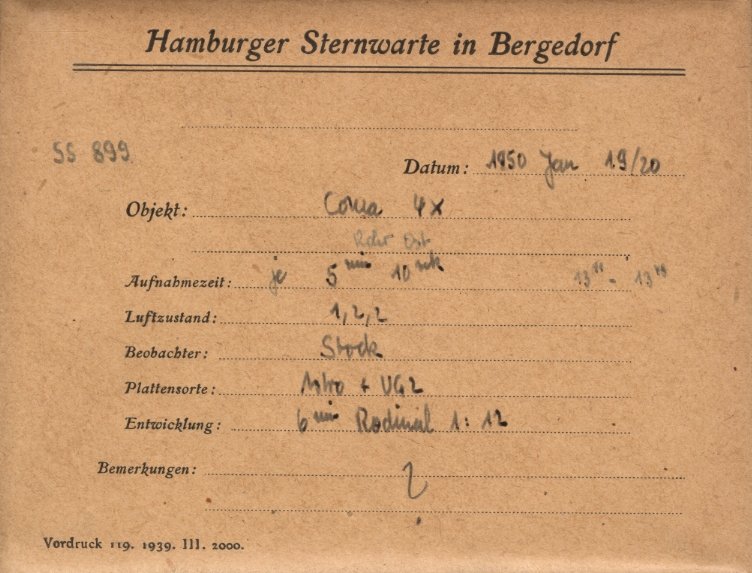 Hamburger Sternwarte in Bergedorf
SS 899
Datum: 1950 Jan 19/20
Objekt: Coma 4x
Rohr Ost
Aufnahmezeit: je 5 min 10 sek
Luftzustand: 1,2,2
Beobachter: Stock
Plattensorte: Astro + UG2
Entwicklung: 6 min Rodinal 1:12
Bemerkungen:
Vordruck 119. 1939. III. 2000.